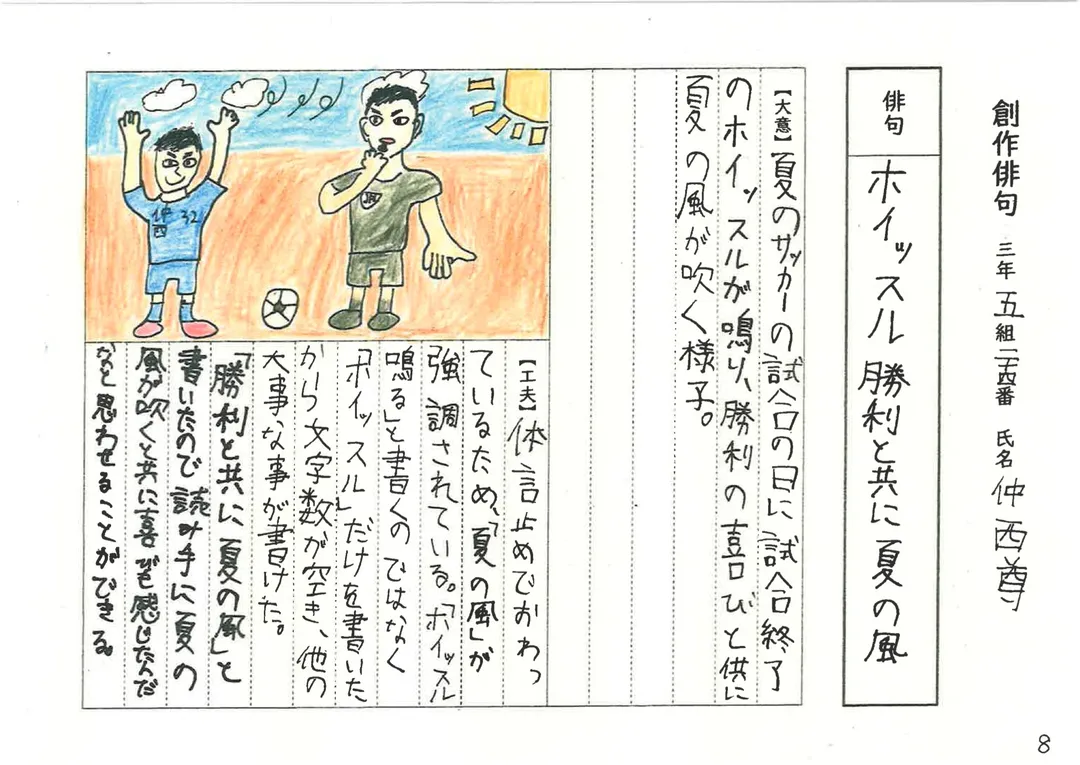 創作俳句 三年五組二十四番 氏名 仲西尊
俳句 ホイッスル 勝利と共に 夏の風
【大意】夏のサッカーの試合の日に試合終了
のホイッスルが鳴り、勝利の喜びと供に
夏の風が吹く様子。
【工夫】体言止めでおわっ
ているため、「夏の風」が
強調されている。「ホイッスル
鳴る」と書くのではなく
「ホイッスル」だけを書いた
から文字数が空き、他の
大事な事が書けた。
「勝利と共に夏の風」と
書いたので読み手に夏の
風が吹くと共に喜びも感じたんだ
なと思わせることができる。
仲西 32
8